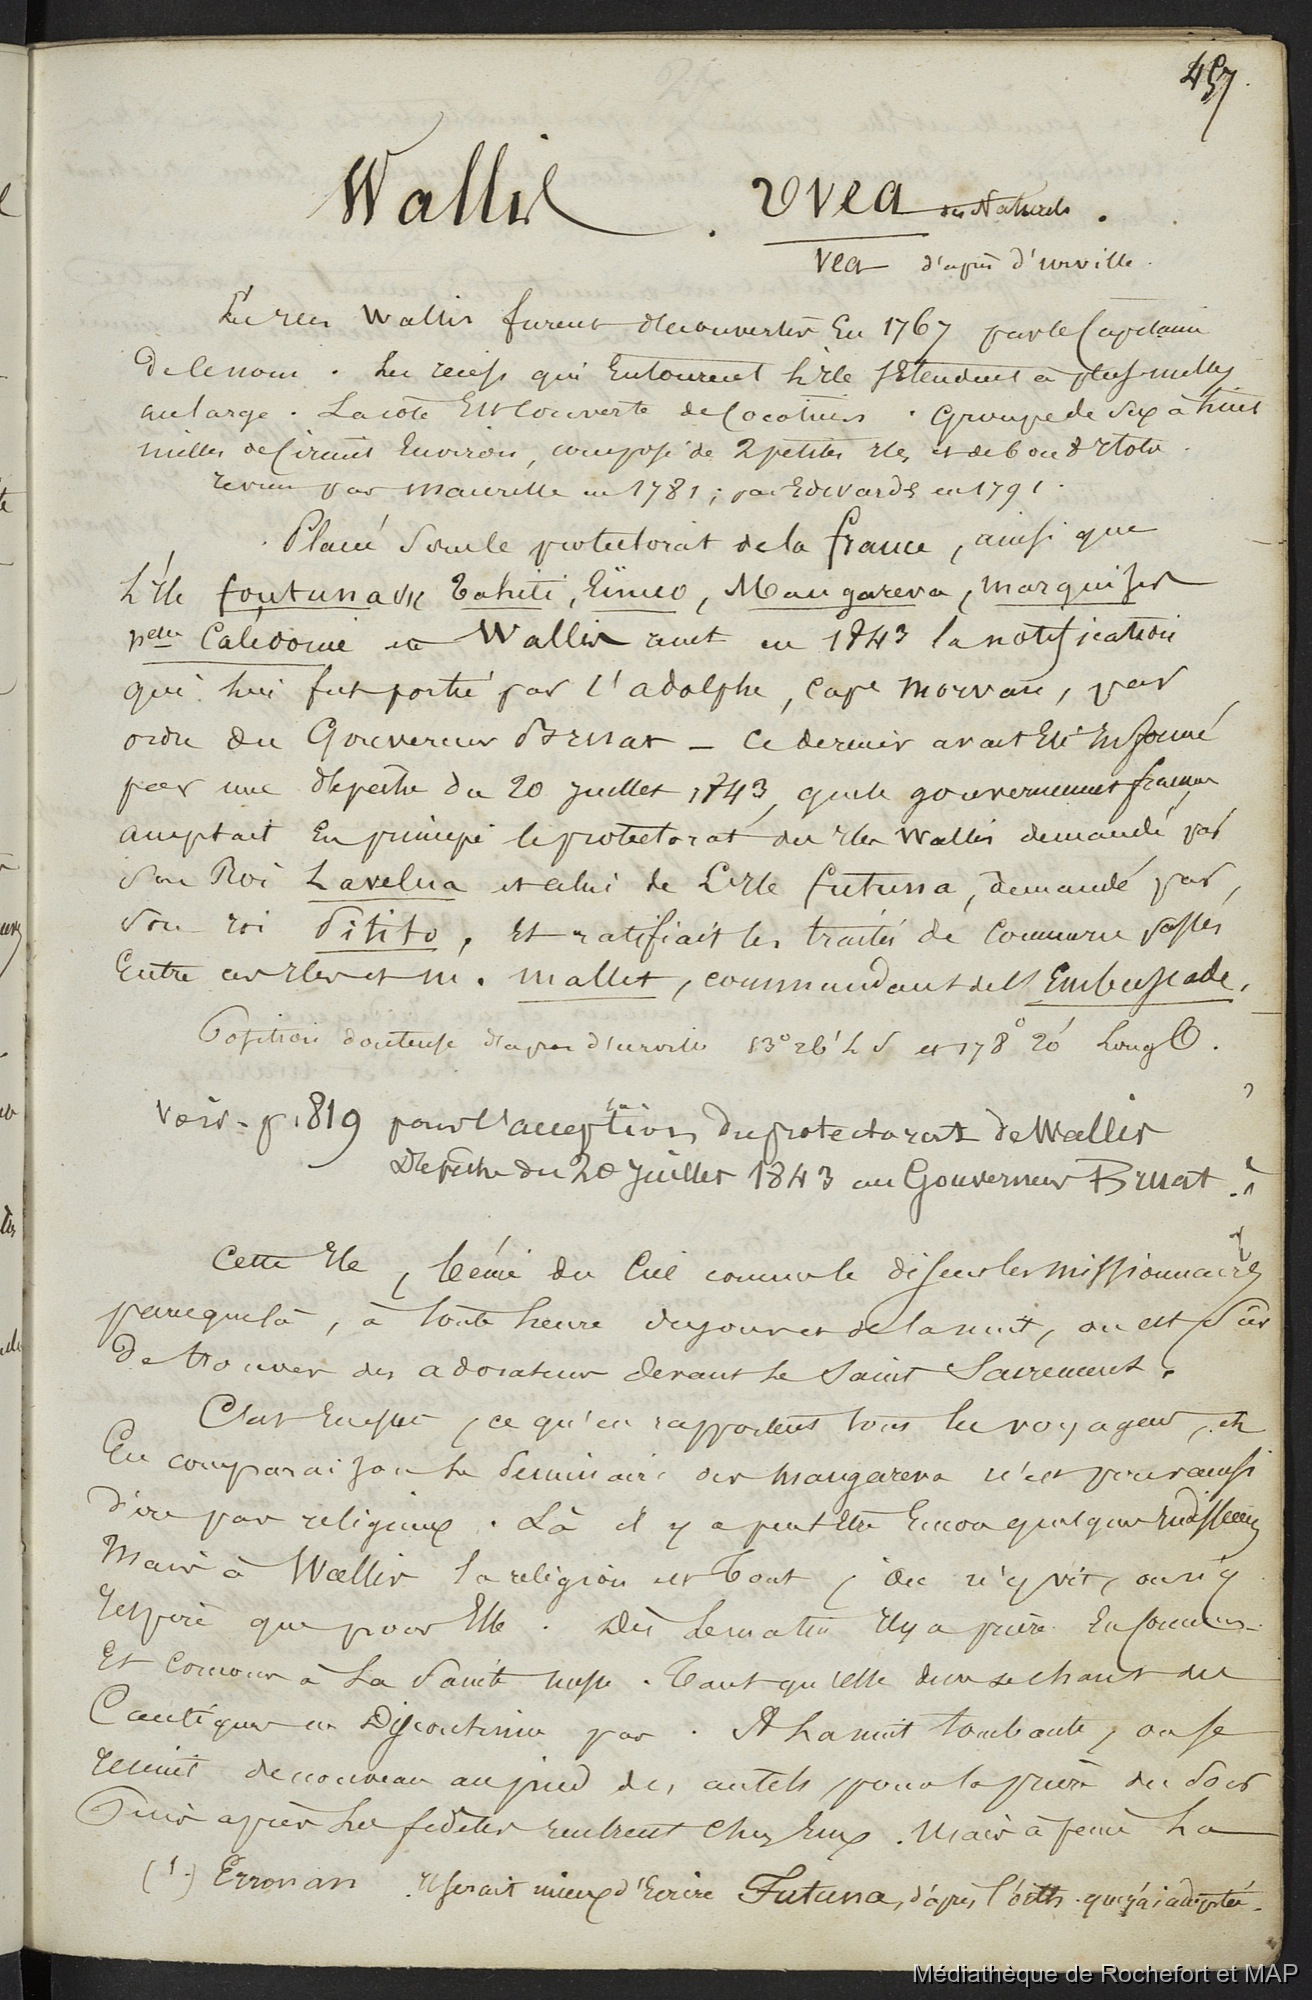 457.
Wallis . Uvea des Naturels .
Vea d'après d'urville .
Les Iles Wallis furent découvertes En 1767 par le Capitaine
de ce nom . Les recifs qui Entourent l'Ile s'Etendent à plus milles
au large . La cote Est Couverte de Cocotiers . Groupe de dix à huit
milles de Circuit Environ, composé de 2 petites Iles et de 6 ou 8 Ilots .
revu par Maurelle en 1781 ; par Edwards en 1791 .
Placé sous le protectorat de la france, ainsi que
l'Ile foutuna Tahiti, Eïmeo, Mangareva, Marquises
Nelle Calédonie Wallis reçut en 1843 la notification
qui lui fut portée par l'adolphe, cape Morvan, par
ordre du Gouverneur Bruat — Ce dernier avait Eté Informé
par une dépêche du 20 juillet 1843, que le gouvernement français
acceptait En principe le protectorat des Iles Wallis demandé par
son Roi Lavelua et celui de L'Ile futuna, demandé par,
son roi Pitito, Et ratifiait les traités de Commerce passés
Entre ces Iles et M. Mallet, commandant de l'Embuscade.
Position douteuse d'après d'urville 13° 26' L S et 178° 20' Long O.
Voir p. 819 pour l'acception du protectorat de Wallis
Dépêche du 20 juillet 1843 au Gouverneur Bruat .
Cette Ile, bénie du Ciel comme le disent les missionnaires
parceque là, à toute heure du jour et de la nuit, on est sûr
de trouver des adorateurs devant le Saint Sacrement .
C'est en effet, ce qu'en rapportent tous les voyageurs, et
En comparaison le séminaire des Mangareva n'est pour ainsi
dire pas religieux . Là il y a peut être Encor quelques Indifférens
Mais à Wallis la religion est Tout, on n'y vit, on n'y
respire que pour Elle . Dès le matin Il y a prière En commun
Et Concours à La Sainte messe . Tant qu'Elle dure le chant des
Cantiques ne Discontinue pas . A La nuit tombante, on se
réunit de nouveau au pied des autels, pour la prière du soir
Puis après les fidèles rentrent chez Eux . Mais à peine La
(1.) Erronan . Il serait mieux d'Ecrire Futuna, d'après l'orth. que j'ai adoptée.
Médiathèque de Rochefort et MAP